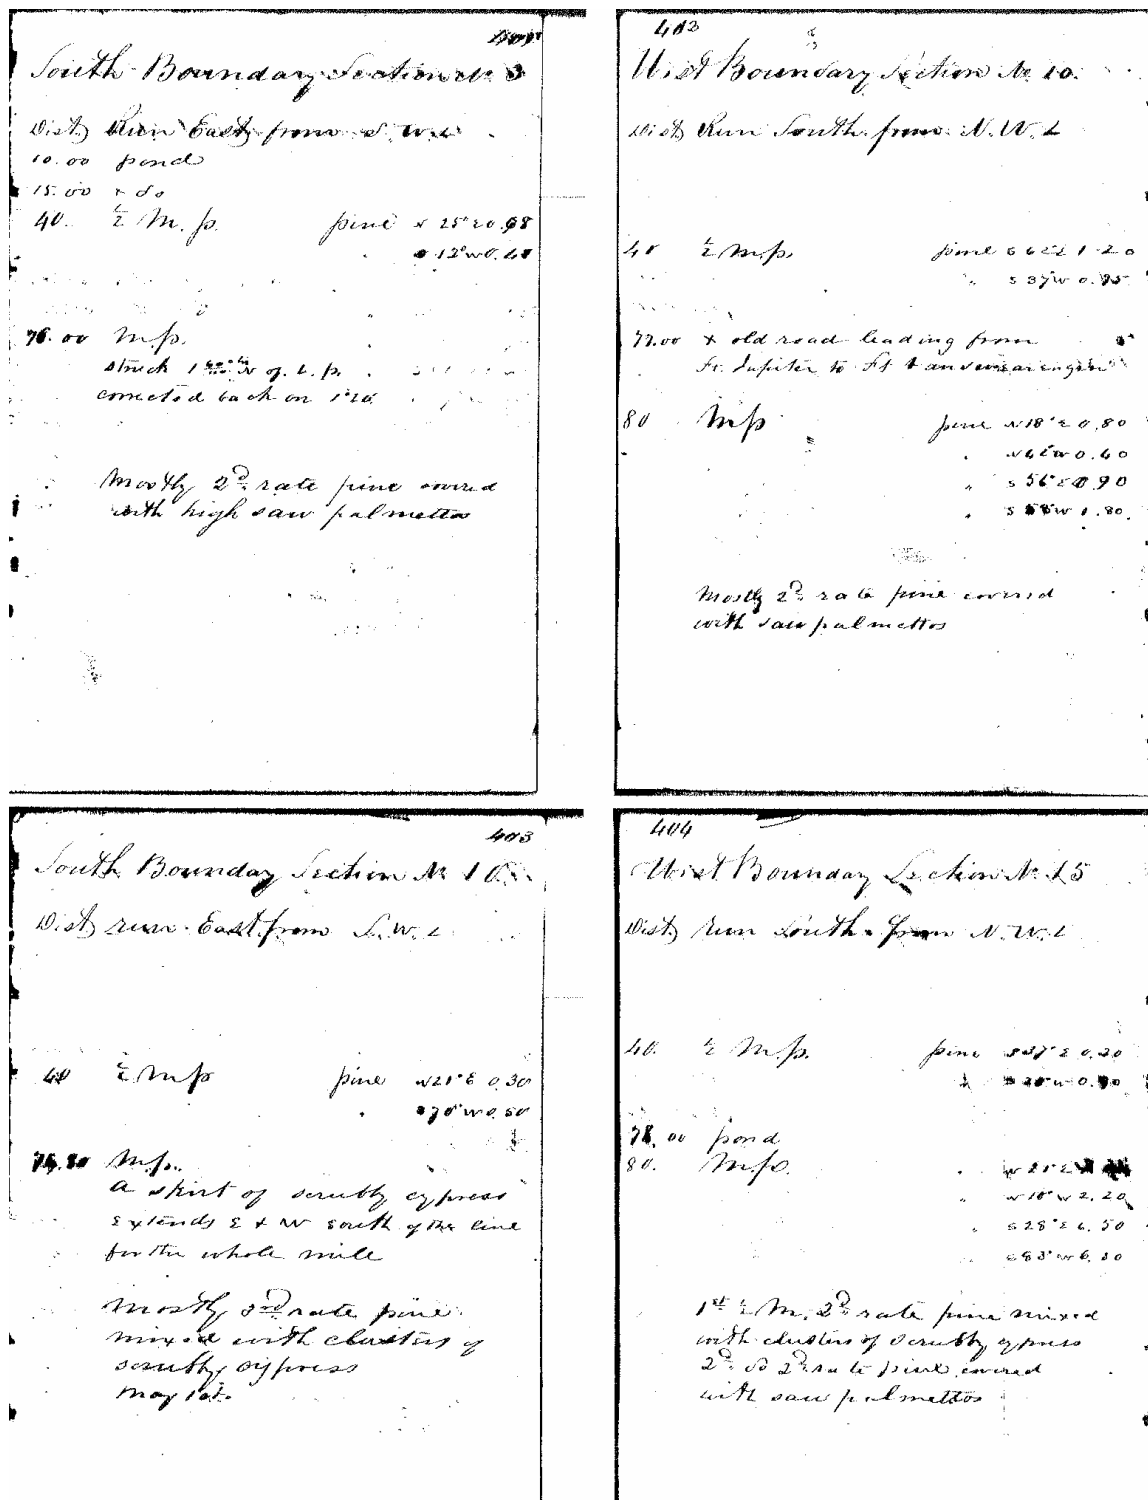 South Boundary Section No 3
Dist Run East from S. W. L
10.00 pond
15.00 + do
40. ½ M. p. pine N 25° E 0.68
12° W 0.
76.00 M.p.
struck 1 N of L. p.
corrected back on 1°20
Mostly 2d rate pine covered
with high saw palmetto
403
West Boundary Section No 10.
Dist Run South from N. W. L
40 ½ M.p. pine S 62 E 1.20
" S 37 W 0.95
77.00 + old road leading from
Ft. Jupiter to Ft
80 M.p pine N 18° E 0.80
" N 62 W 0.60
" S 56° E 0.90
" S W 1.80
Mostly 2d rate pine covered
with saw palmettos
403
South Boundary Section No 10
Dist run East from S. W. L
40 ½ M.p pine N 21° E 0.30
" 70° W 0.50
M.p.
a skirt of scrubby cypress
extends E & W south of the line
for the whole mile
Mostly 3rd rate pine
mixed with clusters of
scrubby cypress
May 1st.
404
West Boundary Section No 15
Dist run South from N. W. L
40. ½ M.p. pine S 37° E 0.30
78.00 pond
80. M.p. " N 21° E
" N 18° W 2.20
" S 28° E 6.50
" S 83° W 6.30
1st ½ M. 2d rate pine mixed
with clusters of scrubby cypress
2d do 2d rate pine covered
with saw palmettos